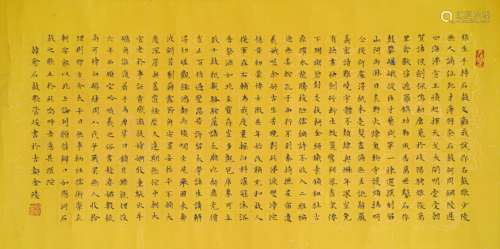 張生手持石鼓文勸我試作石鼓歌少陵
無人謫仙死才薄將奈石鼓何周綱陵遲
四海沸宣王憤起揮天戈大開明堂受朝
賀諸侯劍佩鳴相磨蒐于岐陽騁雄俊萬
里禽獸皆遮羅鐫功勒成告萬世鑿石作
鼓隳嵯峨從臣才藝咸第一揀選撰刻留
山阿雨淋日炙野火燎鬼物守護煩撝呵
公從何處得紙本毫髮盡備無差訛辭嚴
義密讀難曉字體不類隸與蝌年深豈免
有缺畫快劍斫斷生蛟鼉鸞翔鳳翥眾仙
下珊瑚碧樹交枝柯金繩鐵索鎖鈕壯古
鼎躍水龍騰梭陋儒編詩不收入二雅褊
迫無委蛇孔子西行不到秦掎摭星宿遺
羲娥嗟余好古生苦晚對此涕淚雙滂沱
憶昔初蒙博士徵其年始改稱元和故人
從軍在右輔為我度量掘臼科濯冠沐浴
告祭酒如此至寶存豈多氈包席裹可立
致十鼓祇載數駱駝薦諸太廟比郜鼎光價
豈止百倍過聖恩若許留太學諸生講解
得切磋觀經鴻都尚填咽坐見舉國來奔
波剜苔剔蘚露節角安置妥帖平不頗大
廈深簷與蓋覆經歷久遠期無佗中朝大
官老於事詎肯感激徒媕婀牧童敲火牛
礪角誰復著手為摩挲日銷月鑠就埋沒
六年西顧空吟哦羲之俗書趁姿媚數紙
尚可博白鵝繼周八代爭戰罷無人收拾
理則那方今太平日無事柄任儒術崇丘
軻安能以此上論列願借辯口如懸河石
鼓之歌止於此嗚呼吾意其蹉跎
韓愈石鼓歌 書於古都金陵